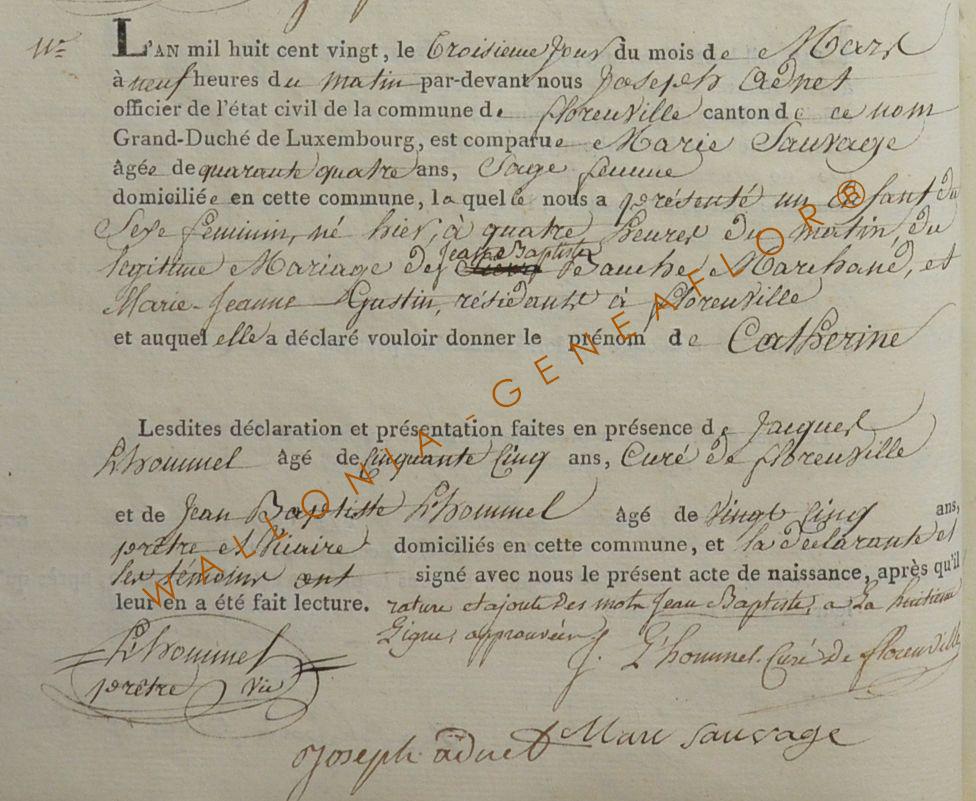 11e
L'AN mil huit cent vingt, le troisieme jour du mois de Mars
à neuf heures du matin par-devant nous Joseph Adnet
officier de l'état civil de la commune de florenville canton de ce nom
Grand-Duché de Luxembourg, est comparue Marie Sauvage
âgée de quarante quatre ans, Sage femme
domiciliée en cette commune, laquelle nous a présenté un enfant du
Sexe feminin, né hier, à quatre heures du matin, du
legitime Mariage de Jean Baptiste Bauche, Marchand, et
Marie-Jeanne Gustin, résidants à florenville
et auquel elle a déclaré vouloir donner le prénom de Catherine
Lesdites déclaration et présentation faites en présence de Jacques
Lhommel âgé de cinquante cinq ans, Curé de florenville
et de Jean Baptiste Lhommel âgé de vingt cinq ans,
prêtre et Vicaire domiciliés en cette commune, et la déclarante et
les témoins ont signé avec nous le présent acte de naissance, après qu'il
leur en a été fait lecture. rature et ajoute des mots Jean Baptiste, a La huitieme
Ligne, approuvées J. L'hommel Curé de florenville
Lhommel
prêtre Vic
joseph adnet Marie sauvage
WALLONIA-GENEAFLOR®